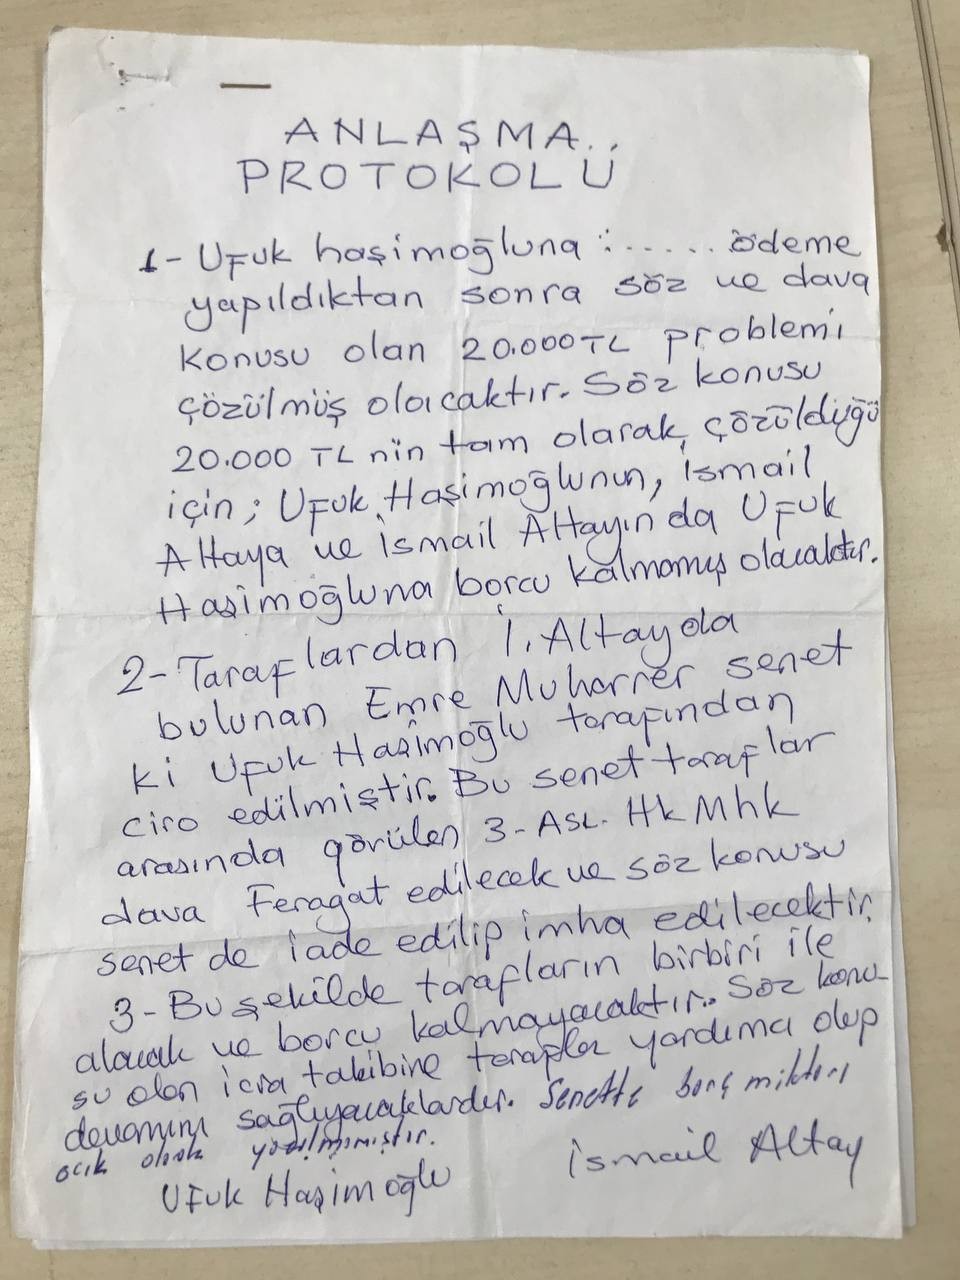 ANLAŞMA
PROTOKOLÜ
1- Ufuk haşimoğluna :..... ödeme
yapıldıktan sonra söz ve dava
konusu olan 20.000 TL problemi
çözülmüş olacaktır. Söz konusu
20.000 TL nin tam olarak çözüldüğü
için; Ufuk Haşimoğlunun, İsmail
Altaya ve İsmail Altayında Ufuk
Haşimoğluna borcu kalmamış olacaktır.
2- Taraflardan İ. Altayda
bulunan Emre Muharrer senet
ki Ufuk Haşimoğlu tarafından
ciro edilmiştir. Bu senet taraflar
arasında görülen 3- Asl. Hk Mhk
dava Feragat edilecek ve söz konusu
senet de iade edilip imha edilecektir.
3- Bu şekilde tarafların birbiri ile
alacak ve borcu kalmayacaktır. Söz konu-
su olan icra takibine taraflar yardımcı olup
devamını sağlıyacaklardır. Senette borç miktarı
açık olarak yazılmamıştır.
Ufuk Haşimoğlu İsmail Altay